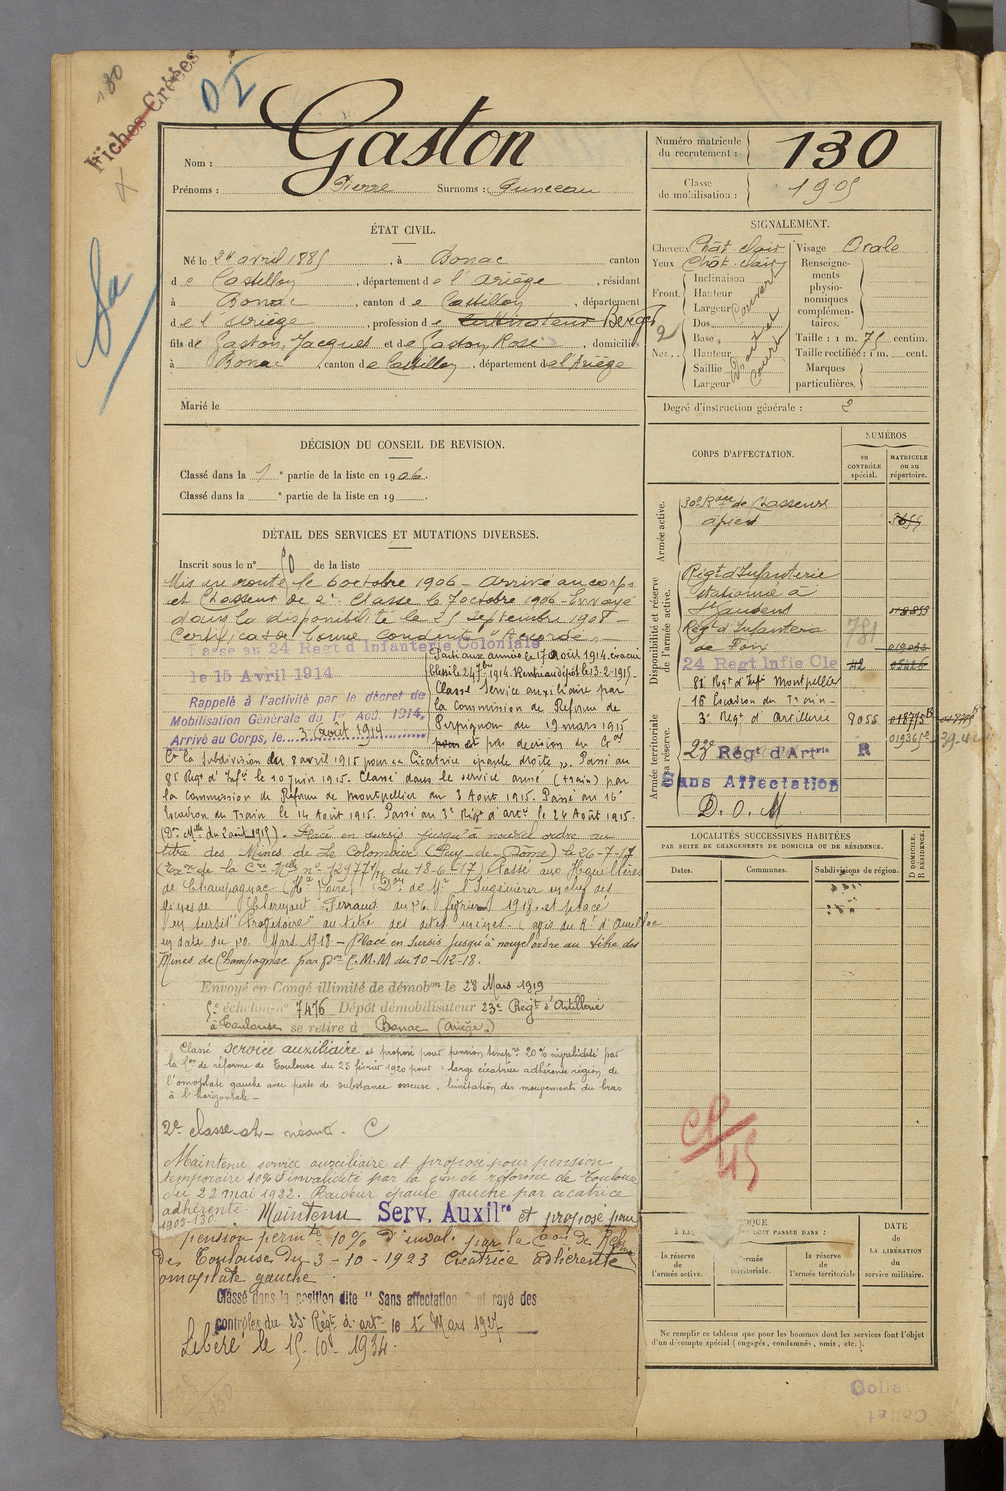 180
Fiches Créées
DI
Sa
Nom : Gaston
Prénoms : Pierre Surnoms :
ÉTAT CIVIL.
Né le 24 avril 1885, à Bonac canton
de Castillon, département de l'Ariège, résidant
à Bonac, canton de Castillon, département
de l'Ariège, profession de cultivateur Berger
fils de Gaston, Jacques et de Gaston, Rose, domiciliés
à Bonac, canton de Castillon, département de l'Ariège
Marié le
DÉCISION DU CONSEIL DE REVISION.
Classé dans la 1 e partie de la liste en 1906.
Classé dans la e partie de la liste en 19 .
DÉTAIL DES SERVICES ET MUTATIONS DIVERSES.
Inscrit sous le n° 50 de la liste
Mis en route le 6 octobre 1906 – arrivé au corps
et Chasseur de 2e classe le 7 octobre 1906 – Envoyé
dans la disponibilité le 25 septembre 1908 –
Certificat de bonne conduite "Accordé" –
Passé au 24 Regt d'Infanterie Coloniale
le 15 Avril 1914
Rappelé à l'activité par le décret de
Mobilisation Générale du 1er Août 1914,
Arrivé au Corps, le 3 août 1914
Parti aux armées le 17 Août 1914. évacué
blessé le 24 9bre 1914. Rentré au dépôt le 13-2-1915.
Classé Service auxiliaire par
la Commission de Réforme de
Perpignan du 19 mars 1915
pour et par décision du Gal
Ct la Subdivision du 8 avril 1915 pour Cicatrice épaule droite. Passé au
81 Regt d'Infie le 10 juin 1915. Classé dans le service armé (train) par
la Commission de Réforme de Montpellier du 3 Août 1915. Passé au 16e
Escadron du Train le 14 Août 1915. Passé au 3e Régt d'artie le 24 Août 1915.
(Don Mlle du 2 août 1915). Placé en sursis jusqu'à nouvel ordre au
titre des Mines de La Colombier (Puy-de-Dôme) le 26-7-17
(Exon de la Cre Mlle n° 12977 1/11 du 18-6-17) Passé aux Houillères
de Champagnac (Hte Loire) (Don de Mr l'Ingénieur en chef des
Mines de Clermont-Ferrand du 26 février 1918. et placé
en sursis "Provisoire" au titre des dites mines – (avis du Rt d'Aurillac
en date du 20 Mars 1918 – Placé en Sursis jusqu'à nouvel ordre au titre des
Mines de Champagnac par Don C.M.M du 10-12-18.
Envoyé en Congé illimité de démobon le 28 Mars 1919
5e échelon n° 7476 Dépôt démobilisateur 23e Régt d'Artillerie
à Toulouse se retire à Bonac (Ariège.)
Classé service auxiliaire et proposé pour pension tempre 20% invalidité par
la Con de réforme de Toulouse du 25 février 1920 pour : large cicatrice adhérente région de
l'omoplate gauche avec perte de substance osseuse, limitation des mouvements du bras
à l'horizontale –
2e classe – néant. C
Maintenu service auxiliaire et proposé pour pension
temporaire 10% d'invalidité par la Con de réforme de Toulouse
du 22 mai 1922. Raideur épaule gauche par cicatrice
adhérente.
1905-130
Maintenu Serv. Auxilre et proposé pour
pension permte 10% d'inval. par la Con de Réfme
de Toulouse du 3-10-1923 Cicatrice adhérente
omoplate gauche
Classé dans la position dite "Sans affectation" et rayé des
contrôles du 23e Régt d'artie le 1er Mars 1927
Libéré le 15-10-1934.
Numéro matricule du recrutement : 130
Classe de mobilisation : 1905
SIGNALEMENT.
Cheveux Chât clair
Yeux Chât clair
Front. Inclinaison
Hauteur
Largeur
Couvert
Nez. Dos
Base
Hauteur
Saillie
Largeur
2
Visage Ovale
Renseignements physionomiques complémentaires.
Taille : 1 m. 75 centim.
Taille rectifiée : 1 m. cent.
Marques particulières.
Degré d'instruction générale : 2
CORPS D'AFFECTATION.
NUMÉROS
au CONTRÔLE spécial.
MATRICULE ou au répertoire.
Armée active.
Disponibilité et réserve de l'armée active.
Armée territoriale et sa réserve.
de Chasseurs
à pied
Régt d'Infanterie
stationné à
St Gaudens
Regt d'Infanterie
de Foix 781
24 Regt Infie Cle 42 05426
81 Régt d'Infie Montpellier
16 Escadron du Train –
3e Régt d'Artillerie 9055
23e Régt d'Artrie R
Sans Affectation
D. O. M.
LOCALITÉS SUCCESSIVES HABITÉES
PAR SUITE DE CHANGEMENTS DE DOMICILE OU DE RÉSIDENCE.
Dates.
Communes.
Subdivisions de région.
D DOMICILE. R RÉSIDENCE.
CP/45
la réserve de l'armée active.
l'armée territoriale.
la réserve de l'armée territoriale
DATE de LA LIBÉRATION du service militaire.
Ne remplir ce tableau que pour les hommes dont les services font l'objet
d'un décompte spécial (engagés, condamnés, omis, etc.).
Collat
Collat